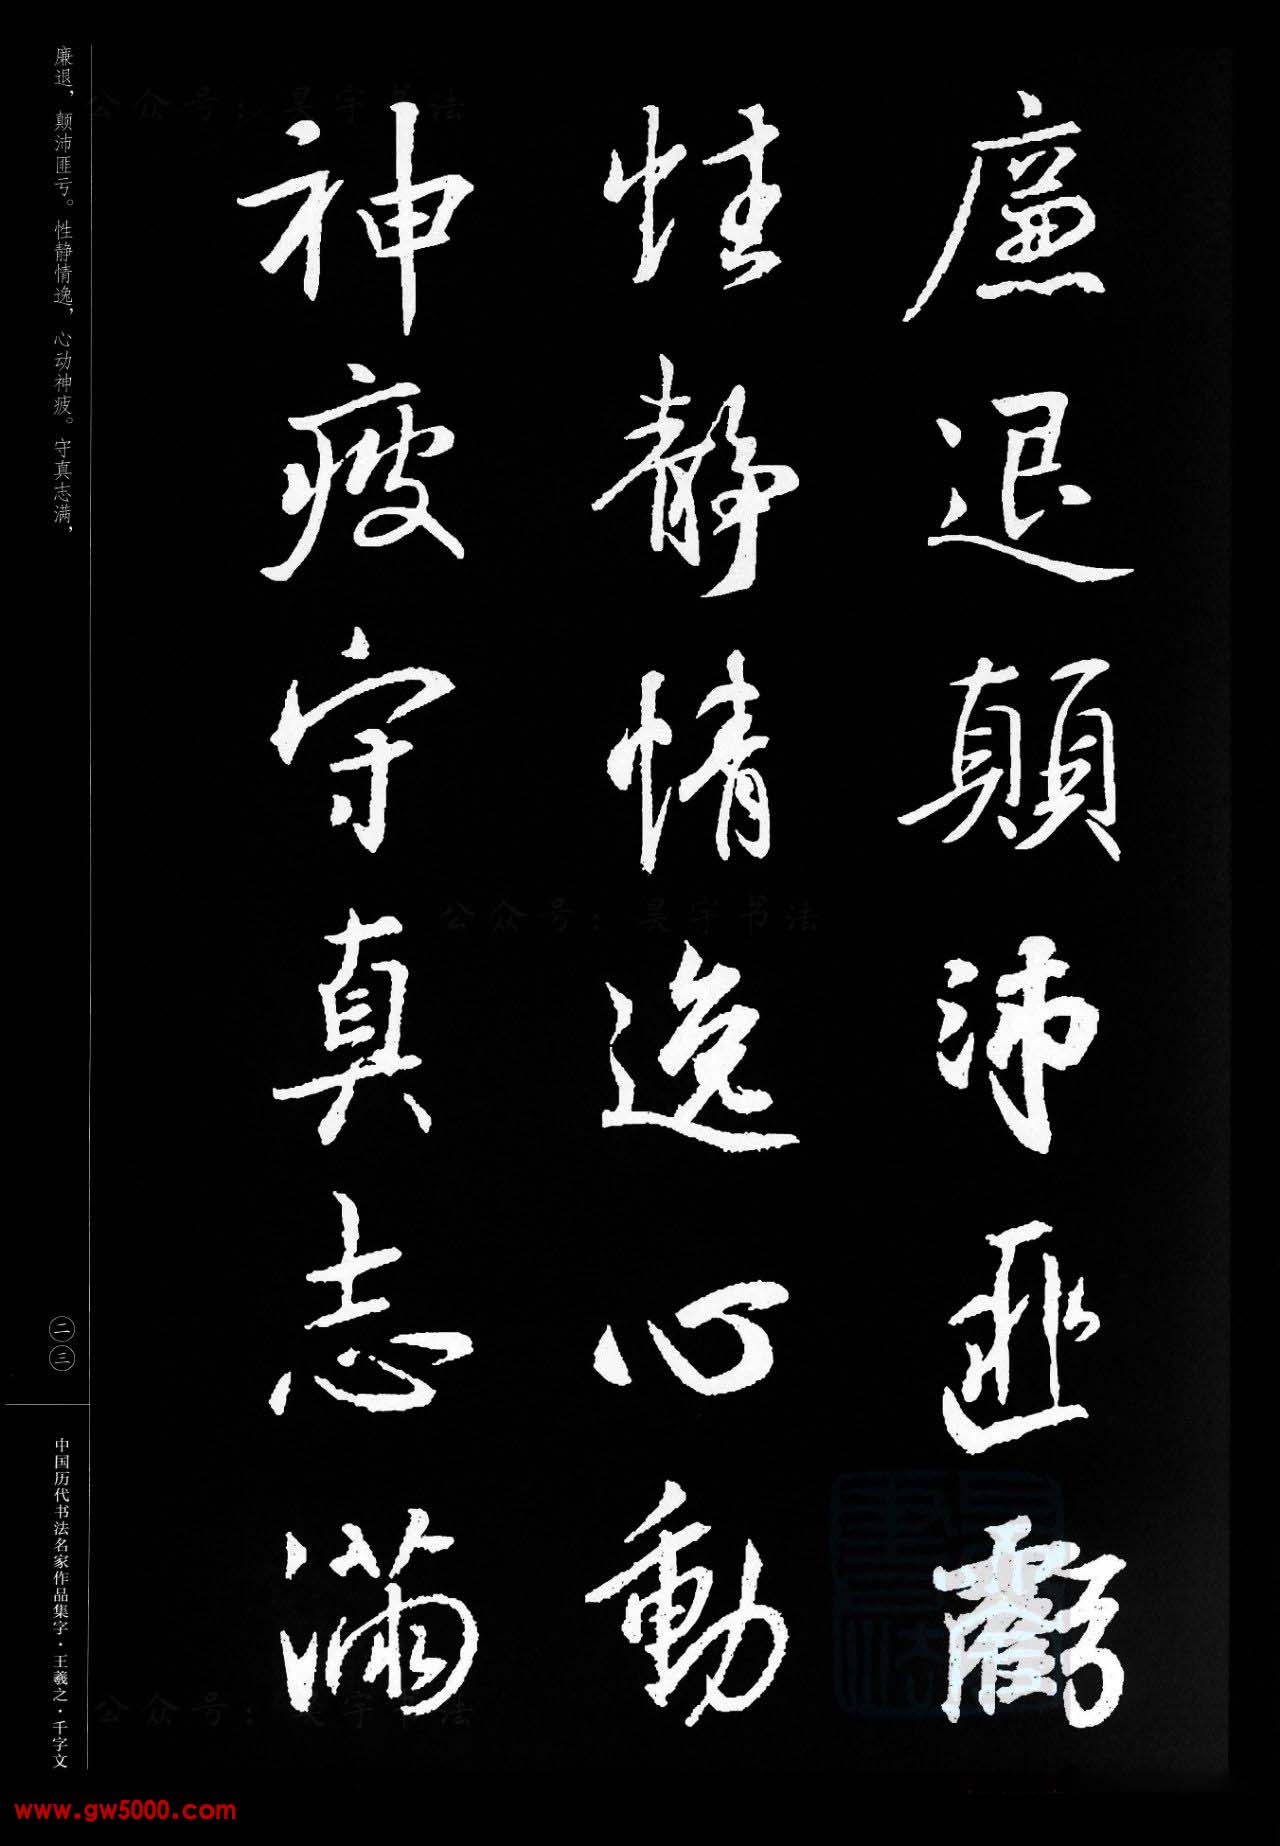 廉退顛沛匪虧
性靜情逸心動
神疲守真志滿
廉退，颠沛匪亏。性静情逸，心动神疲。守真志满，
二三
中国历代书法名家作品集字·王羲之·千字文
公众号：昊宇书法
公众号：昊宇书法
公众号：昊宇书法
www.gw5000.com